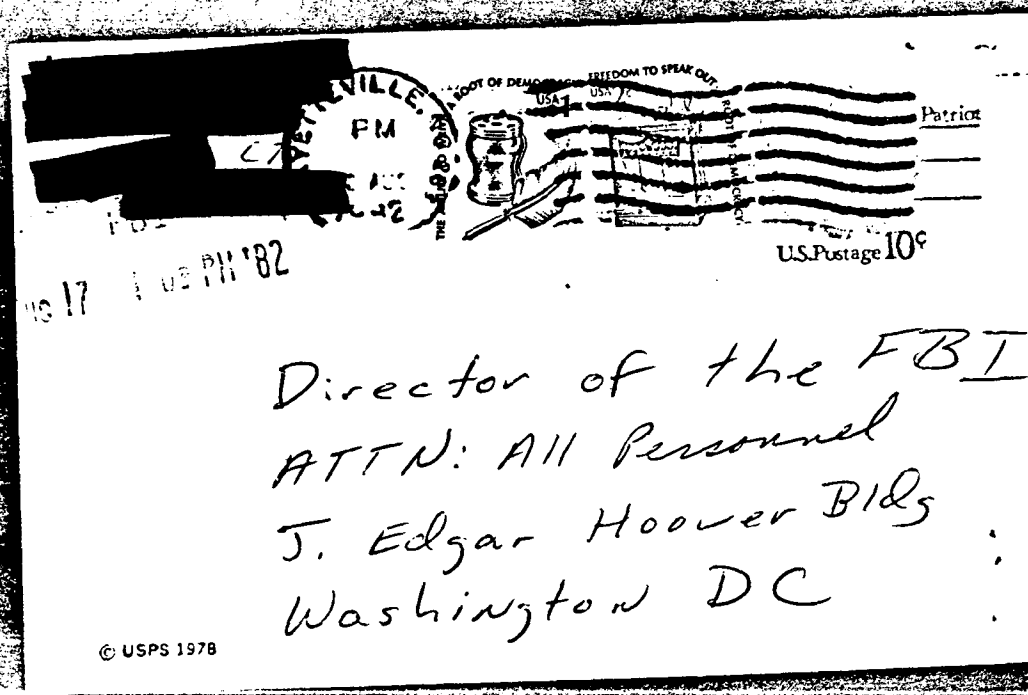 A ROOT OF DEMOCRACY FREEDOM TO SPEAK OUT
USA 1 USA
PM
AUG
Patriot
U.S.Postage 10¢
17 PM '82
Director of the FBI
ATTN: All Personnel
J. Edgar Hoover Bldg
Washington DC
© USPS 1978